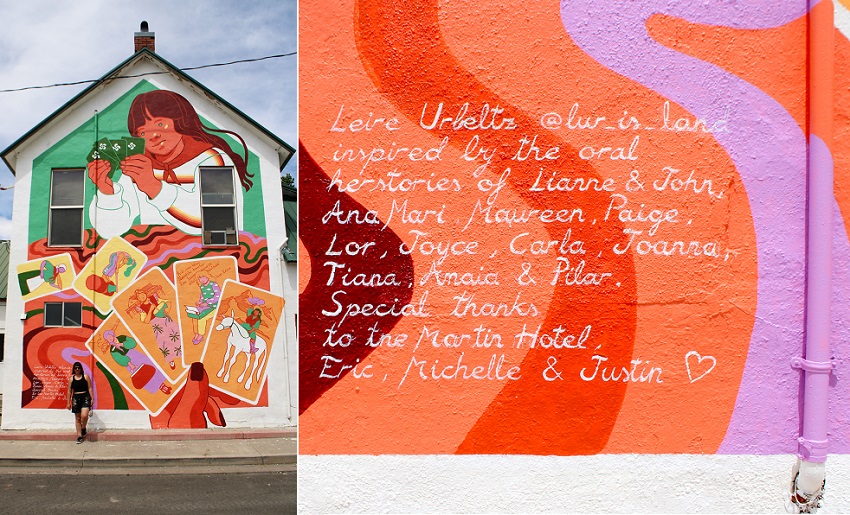 Leire Urbeltz @lur_is_land
inspired by the oral
herstories of Lianne & John,
Ana Mari, Maureen, Paige,
Lor, Joyce, Carla, Joanna,
Tiana, Anaia & Pilar.
Special thanks
to the Martin Hotel,
Eric, Michelle & Justin ♡